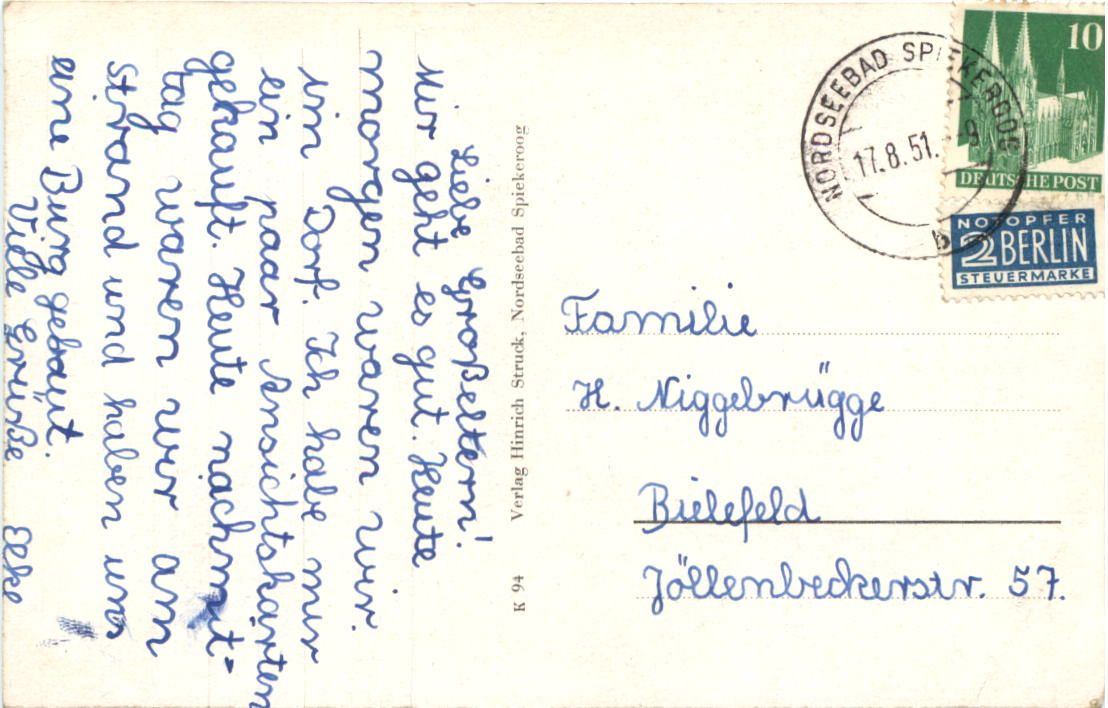 Liebe Großeltern!
Mir geht es gut. Heute
morgen waren wir
im Dorf. Ich habe mir
ein paar Ansichtskarten
gekauft. Heute nachmit-
tag waren wir am
Strand und haben uns
eine Burg gebaut.
Viele Grüße Elke
K 94 Verlag Hinrich Struck, Nordseebad Spiekeroog
NORDSEEBAD SPIEKEROOG
17.8.51.-9
b
10
DEUTSCHE POST
NOTOPFER
2 BERLIN
STEUERMARKE
Familie
H. Niggebrügge
Bielefeld
Jöllenbeckerstr. 57.